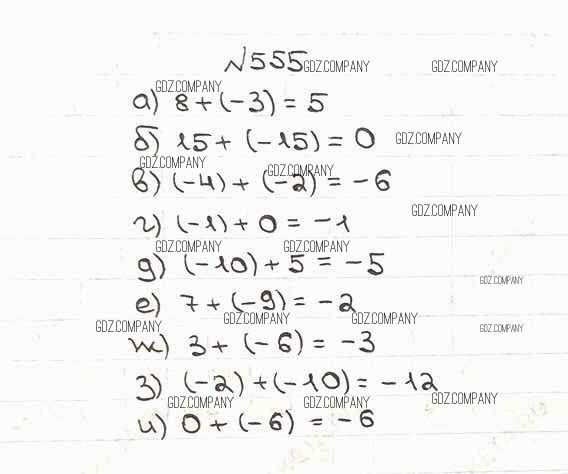 №555 GDZ.COMPANY GDZ.COMPANY
GDZ.COMPANY
а) 8+(-3) = 5
б) 15+ (-15) = 0 GDZ.COMPANY
GDZ.COMPANY GDZ.COMPANY
в) (-4) + (-2) = -6
GDZ.COMPANY
г) (-1) + 0 = -1
GDZ.COMPANY GDZ.COMPANY
д) (-10) + 5 = -5
GDZ.COMPANY
е) 7 + (-9) = -2
GDZ.COMPANY GDZ.COMPANY GDZ.COMPANY
GDZ.COMPANY
ж) 3 + (-6) = -3
з) (-2) +(-10) = -12
GDZ.COMPANY GDZ.COMPANY GDZ.COMPANY
и) 0 + (-6) = -6